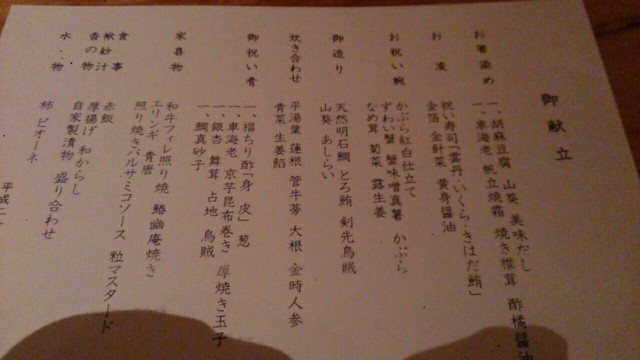 御献立
お箸染め
一、胡麻豆腐 山葵 美味だし
一、車海老 帆立焼霜 焼き椎茸 酢橘醤油
お凌
祝い寿司「雲丹・いくら・きはだ鮪」
金箔 金針菜 黄身醤油
お祝い椀
かぶら紅白仕立て
ずわい蟹 蟹味噌真薯 かぶら
なめ茸 菊菜 露生姜
御造り
天然明石鯛 とろ鮪 剣先烏賊
山葵 あしらい
炊き合わせ
平湯葉 蓮根 管牛蒡 大根 金時人参
青菜 生姜餡
御祝い肴
一、福ちり酢「身 皮」葱
一、車海老 京芋昆布巻き 厚焼き玉子
一、銀杏 舞茸 占地 烏賊
一、鯛真砂子
家喜物
和牛フィレ照り焼 鰆幽庵焼き
エリンギ 青唐
照り焼きバルサミコソース 粒マスタード
食事
赤飯
袱紗汁
厚揚げ 和からし
香の物
自家製漬物 盛り合わせ
水・物
柿 ピオーネ
平成二